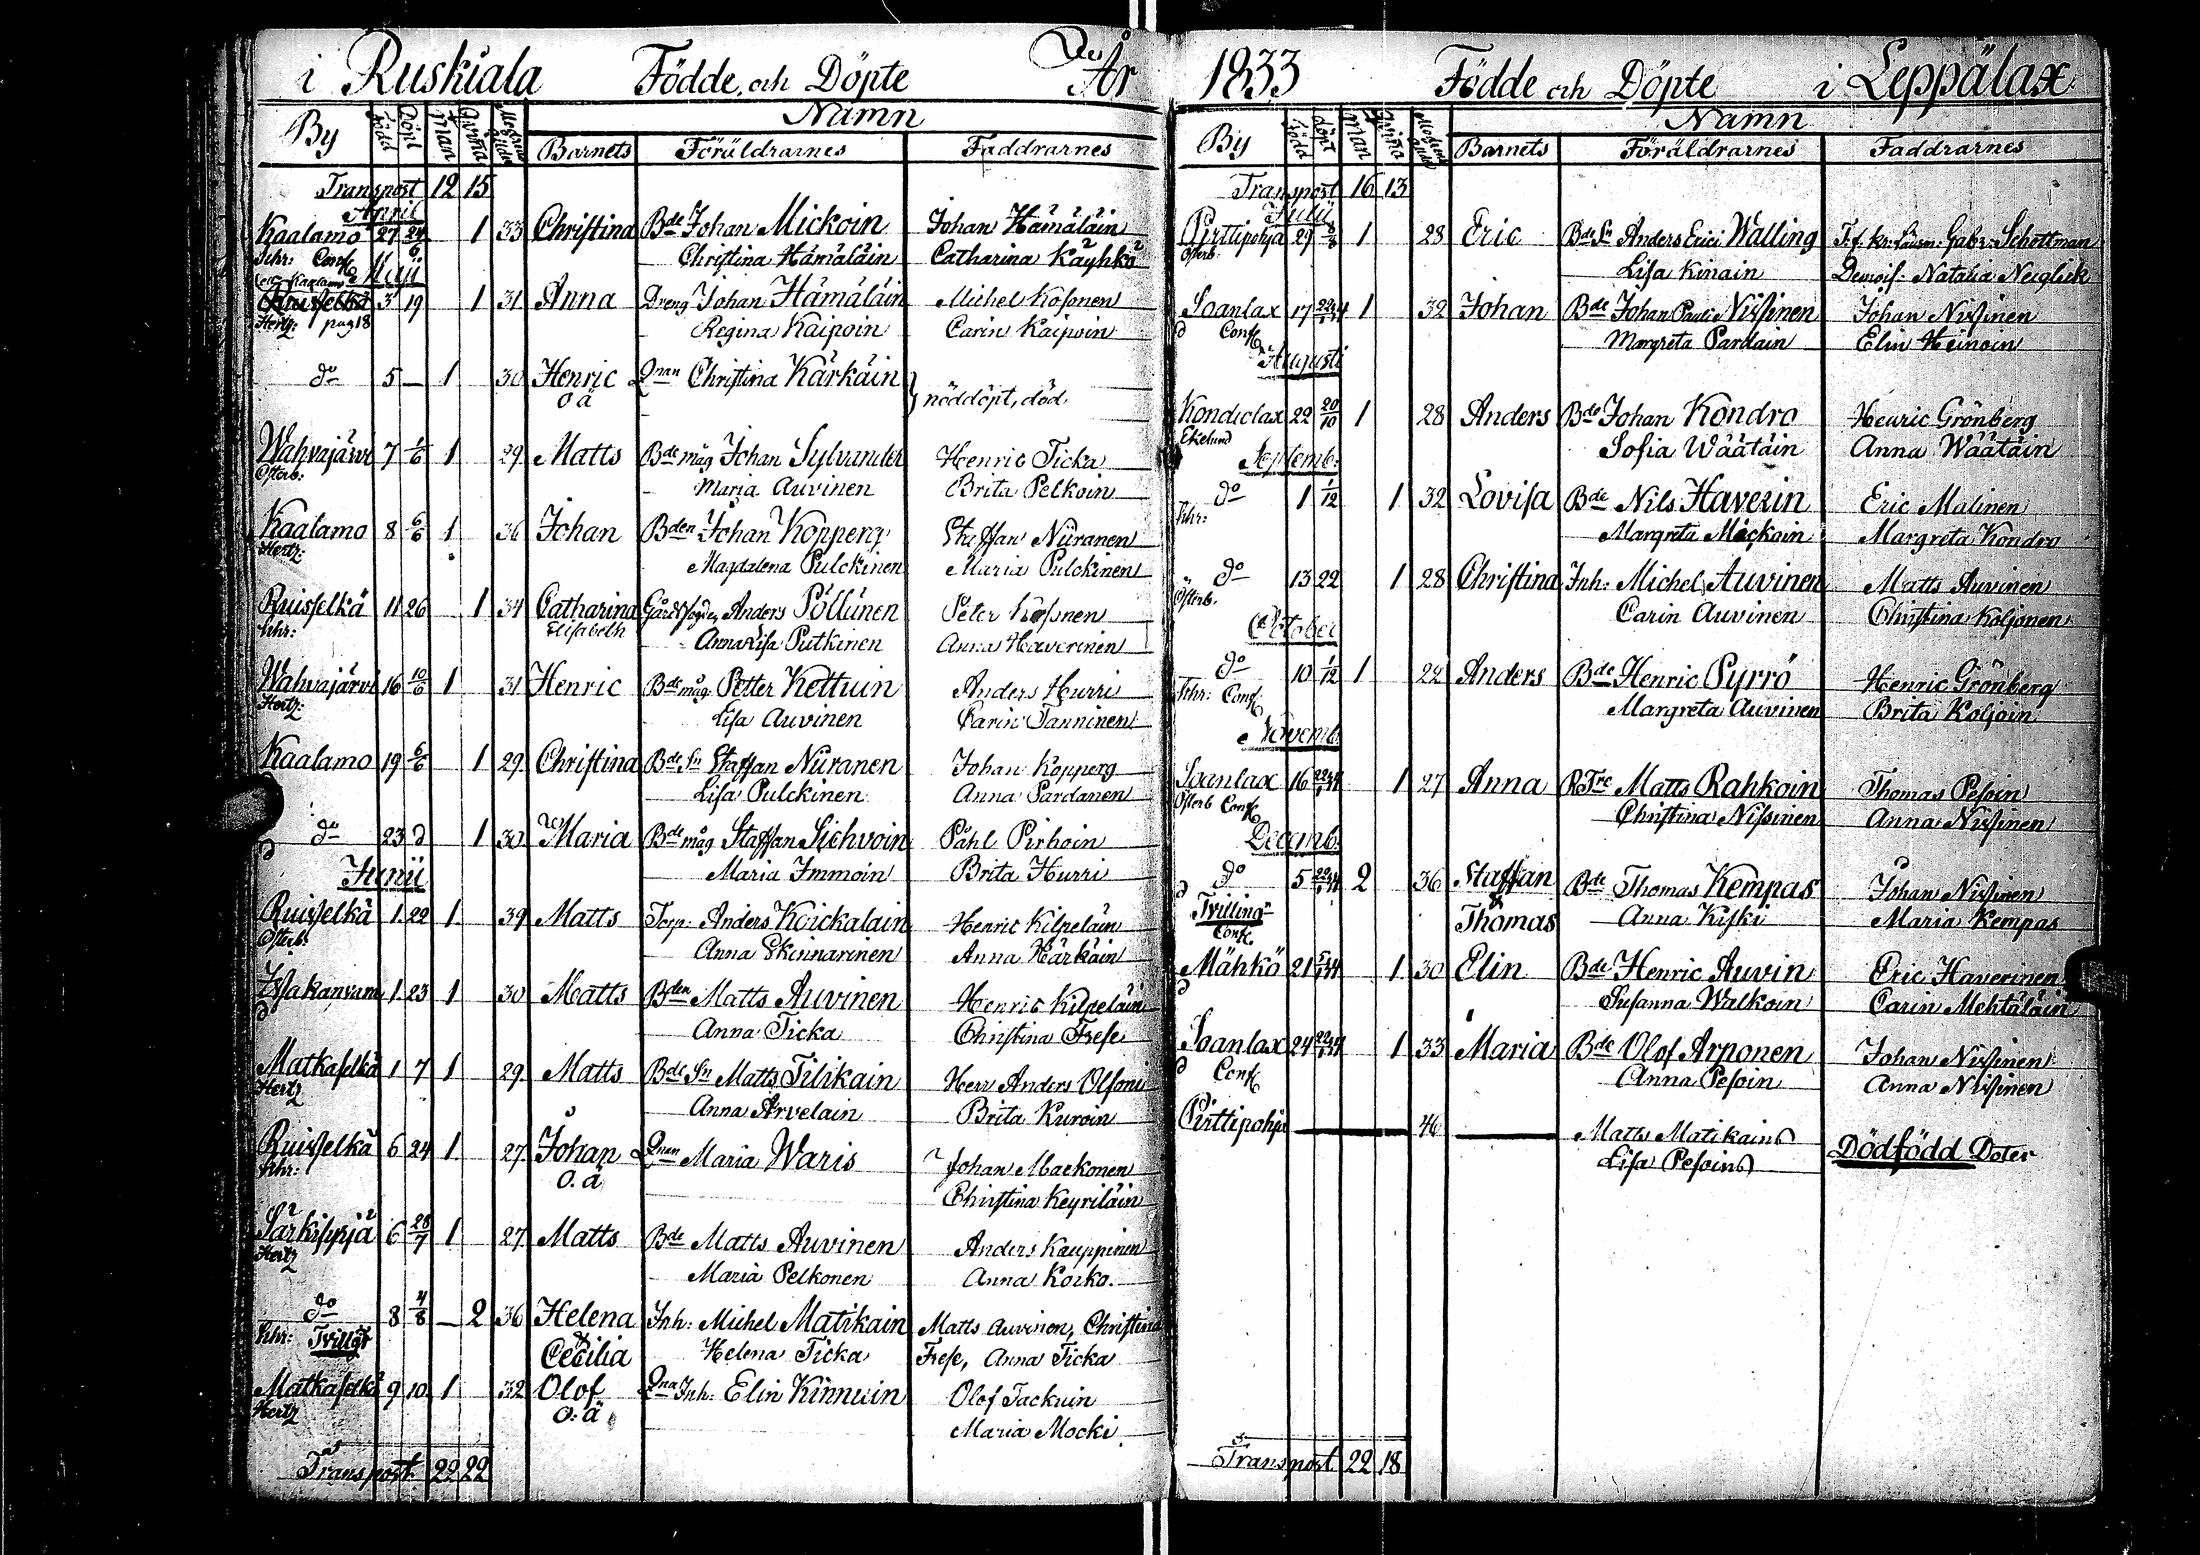 i Ruskiala Födde och Döpte År
By Född Döpt Man Qvinna Namn
Barnets Föräldrarnes Faddrarnes
Transport 12 15
April
Kaalamo 27 1 33 Christina Bde Johan Mickoin Johan Hämäläin
Christina Hämäläin Catharina Käyhkö
Maji
Ruisselkä 3 19 1 31 Anna Dreng Johan Hämäläin Michel Kosonen
Hertz: pag 18 Regina Kaipoin Carin Kaipoin
do 5 — 1 30 Henric Qnan Christina Kärkäin
o ä nöddöpt, död.
Wahvajärvi 7 1/6 1 29 Matts Bde måg Johan Sylvander Henric Ticka
Österb: Maria Auvinen Brita Pelkoin
Kaalamo 8 6/6 1 36 Johan Bden Johan Kopperg Staffan Niiranen
Hertz: Magdalena Pulckinen Maria Pulckinen
Ruisselkä 11 26 1 34 Catharina Gårdsfogden Anders Pöllänen Peter
Elisabeth Anna Lisa Putkinen Anna Haverinen
Wahvajärvi 16 10/6 1 31 Henric Bde måg Petter Kettuin Anders Hurri
Hertz: Lisa Auvinen Carin Tanninen
Kaalamo 19 6/6 1 29 Christina Bde Sn Staffan Niiranen Johan Kopperg
Lisa Pulckinen Anna Pardanen
do 23 d 1 30 Maria Bde måg Staffan Sichvoin Påhl Pirhoin
Maria Immoin Brita Hurri
Junii
Ruisselkä 1 22 1 39 Matts Torp. Anders Koickalain Henric Kilpeläin
Österb: Anna Skinnarinen Anna Härkäin
1 23 1 30 Matts Bden Matts Auvinen Henric Kilpeläin
Anna Ticka Christina Frese
Matkaselkä 1 7 1 29 Matts Bde Sn Matts Tilikain Herr Anders Olsoni
Hertz Anna Arvelain Brita Kuroin
Ruisselkä 6 24 1 27 Johan Qnan Maria Waris Johan Maekonen
o. ä Christina Keyriläin
Särkisyrjä 6 28/7 1 27 Matts Bde Matts Auvinen Anders Kauppinen
Hertz Maria Pelkonen Anna Korko.
do 8 4/8 — 2 36 Helena Inh: Michel Matikain Matts Auvinen, Christina
& Cecilia Helena Ticka Frese, Anna Ticka
Matkaselkä 9 10 1 32 Olof Qna Inh: Elin Kinnuin Olof Tackuin
Hertz o. ä Maria Mocki
Transport 22 22
1833 Födde och Döpte i Leppälax
By Född döpt Man Qvina Namn
Barnets Föräldrarnes Faddrarnes
Transport 16 13
Julii
Pirttipohja 29 1 28 Eric Bde Sn Anders Erici Walling Gabr: Schottman
Österb: Lisa Kinain Demois: Natalia Neiglick
Soanlax 17 1 32 Johan Bde Johan Pauli Nissinen Johan Nissinen
Conf. Margreta Pardain Elin Heinoin
Augusti
Kondiclax 22 20/10 1 28 Anders Bde Johan Kondro Henric Grönberg
Sofia Wäätäin Anna Wäätäin
Septemb:
do 1 1/12 1 32 Lovisa Bde Nils Haverin Eric Malinen
Margreta Mickoin Margreta Kondro
do 13 22 1 28 Christina Inh: Michel Auvinen Matts Auvinen
Österb. Carin Auvinen Christina Koljonen
October
do 10 1/12 1 22 Anders Bde Henric Pyrrö Henric Grönberg
Conf. Margreta Auvinen Brita Koljoin
Novemb
Soanlax 16 1 27 Anna Matts Rahkoin Thomas Pesoin
Österb Conf. Christina Nissinen Anna Nissinen
Decemb.
do 5 2 36 Staffan Bde Thomas Kempas Johan Nissinen
Tvilling & Thomas Anna Kiski Maria Kempas
Conf.
Mähkö 21 1 30 Elin Bde Henric Auvin Eric Haverinen
Susanna Walkoin Carin Mehtäläin
Soanlax 24 1 33 Maria Bde Olof Arponen Johan Nissinen
Conf. Anna Pesoin Anna Nissinen
Pirttipohja 46 Matts Matikains Dödfödd Doter
Lisa Pesoins
Transport 22 18